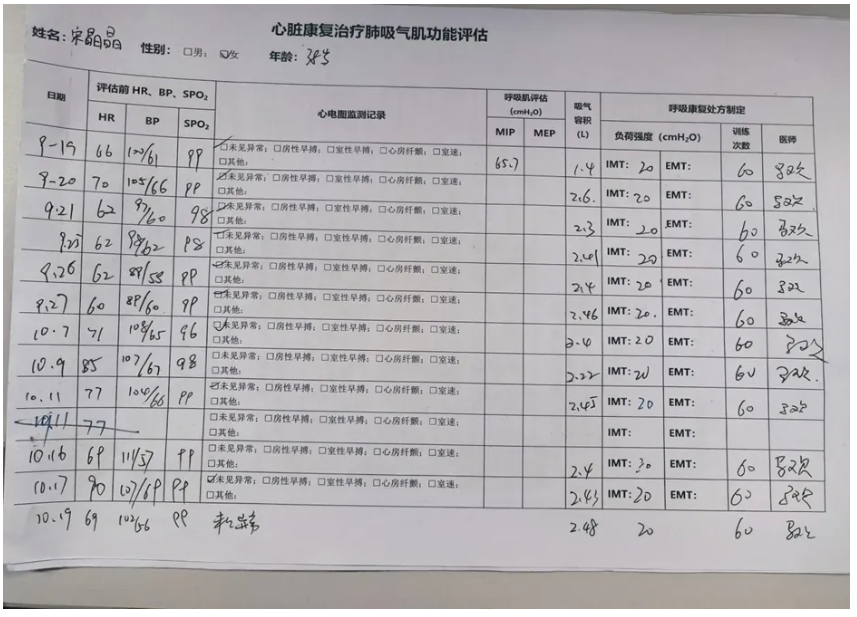 心脏康复治疗肺吸气肌功能评估
姓名：宋晶晶 性别：□男；☑女 年龄：38岁
日期 评估前 HR、BP、SPO₂ 心电图监测记录 呼吸肌评估 (cmH₂O) 吸气容积 (L) 呼吸康复处方制定
HR BP SPO₂ MIP MEP 负荷强度（cmH₂O） 训练次数 医师
9-19 66 100/61 99 ☑未见异常；□房性早搏；□室性早搏；□心房纤颤；□室速； 65.7 1.4 IMT: 20 EMT: 60
□其他:
9-20 70 105/66 99 ☑未见异常；□房性早搏；□室性早搏；□心房纤颤；□室速； 2.6. IMT: 20 EMT: 60
□其他:
9.21 62 97/60 98 ☑未见异常；□房性早搏；□室性早搏；□心房纤颤；□室速； 2.3 IMT: 20 EMT: 60
□其他:
9.25 62 98/62 98 ☑未见异常；□房性早搏；□室性早搏；□心房纤颤；□室速； 2.41 IMT: 20 EMT: 60
□其他:
9.26 62 89/55 99 ☑未见异常；□房性早搏；□室性早搏；□心房纤颤；□室速； 2.4 IMT: 20 EMT: 60
□其他:
9.27 60 89/60 99 ☑未见异常；□房性早搏；□室性早搏；□心房纤颤；□室速； 2.46 IMT: 20. EMT: 60
□其他:
10.7 71 108/65 96 ☑未见异常；□房性早搏；□室性早搏；□心房纤颤；□室速； 2.4 IMT: 20 EMT: 60
□其他:
10.9 85 107/67 98 □未见异常；□房性早搏；□室性早搏；□心房纤颤；□室速； 2.22 IMT: 20 EMT: 60
□其他:
10.11 77 104/66 99 ☑未见异常；□房性早搏；□室性早搏；□心房纤颤；□室速； 2.45 IMT: 20 EMT: 60
□其他:
10.11 77 □未见异常；□房性早搏；□室性早搏；□心房纤颤；□室速； IMT: EMT:
□其他:
10.16 69 111/57 99 □未见异常；□房性早搏；□室性早搏；□心房纤颤；□室速； 2.4 IMT: 30 EMT: 60
□其他:
10.17 90 107/69 99 ☑未见异常；□房性早搏；□室性早搏；□心房纤颤；□室速； 2.43 IMT: 20 EMT: 60
□其他:
10.19 69 102/56 99 未见异常 2.48 20 60